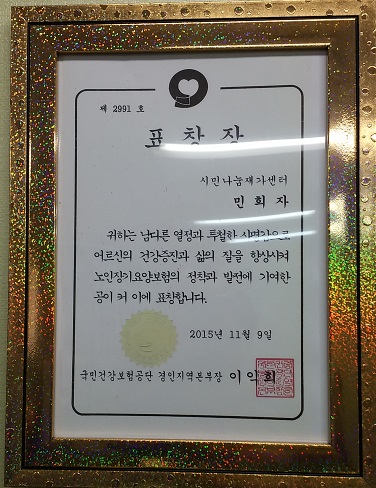 제 2991 호
표 창 장
시민나눔재가센터
민 희 자
귀하는 남다른 열정과 특철한 사명감으로
어르신의 건강증진과 삶의 질을 향상시켜
노인장기요양보험의 정착과 발전에 기여한
공이 커 이에 표창합니다.
2015년 11월 9일
국민건강보험공단 경인지역본부장 이 익 희